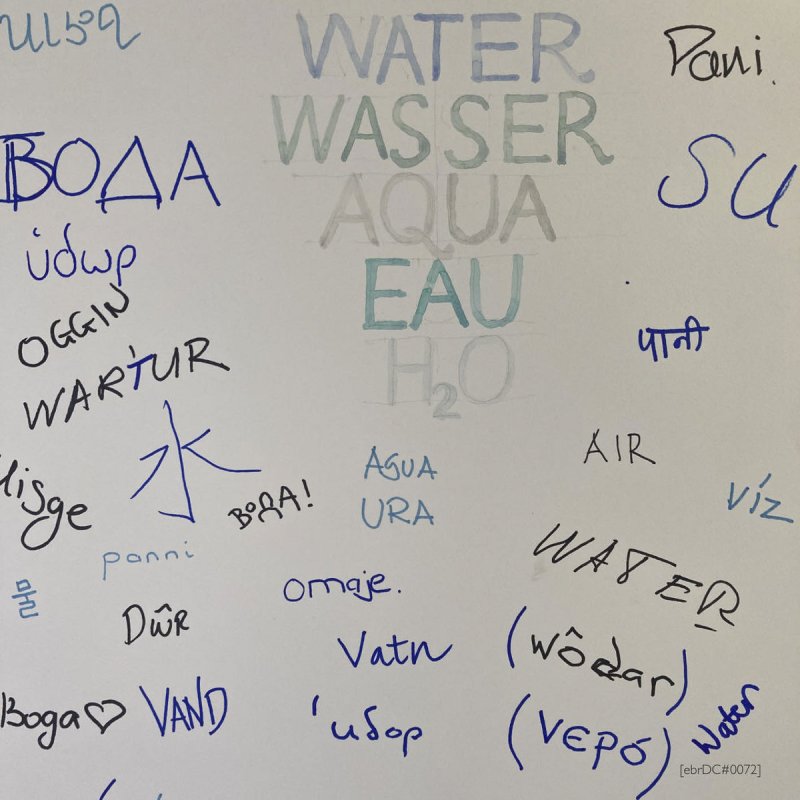 WATER
Pani.
WASSER
ВОДА
AQUA
SU
ύδωρ
EAU
OGGIN
पानी
H₂O
WARTUR
水
AIR
AGUA
Uisge
ВОДА!
URA
víz
panni
WATER
물
omaje.
DŵR
Vatn
(wôdar)
Boga♡
VAND
'υδορ
(νερό)
Water
[ebrDC#0072]